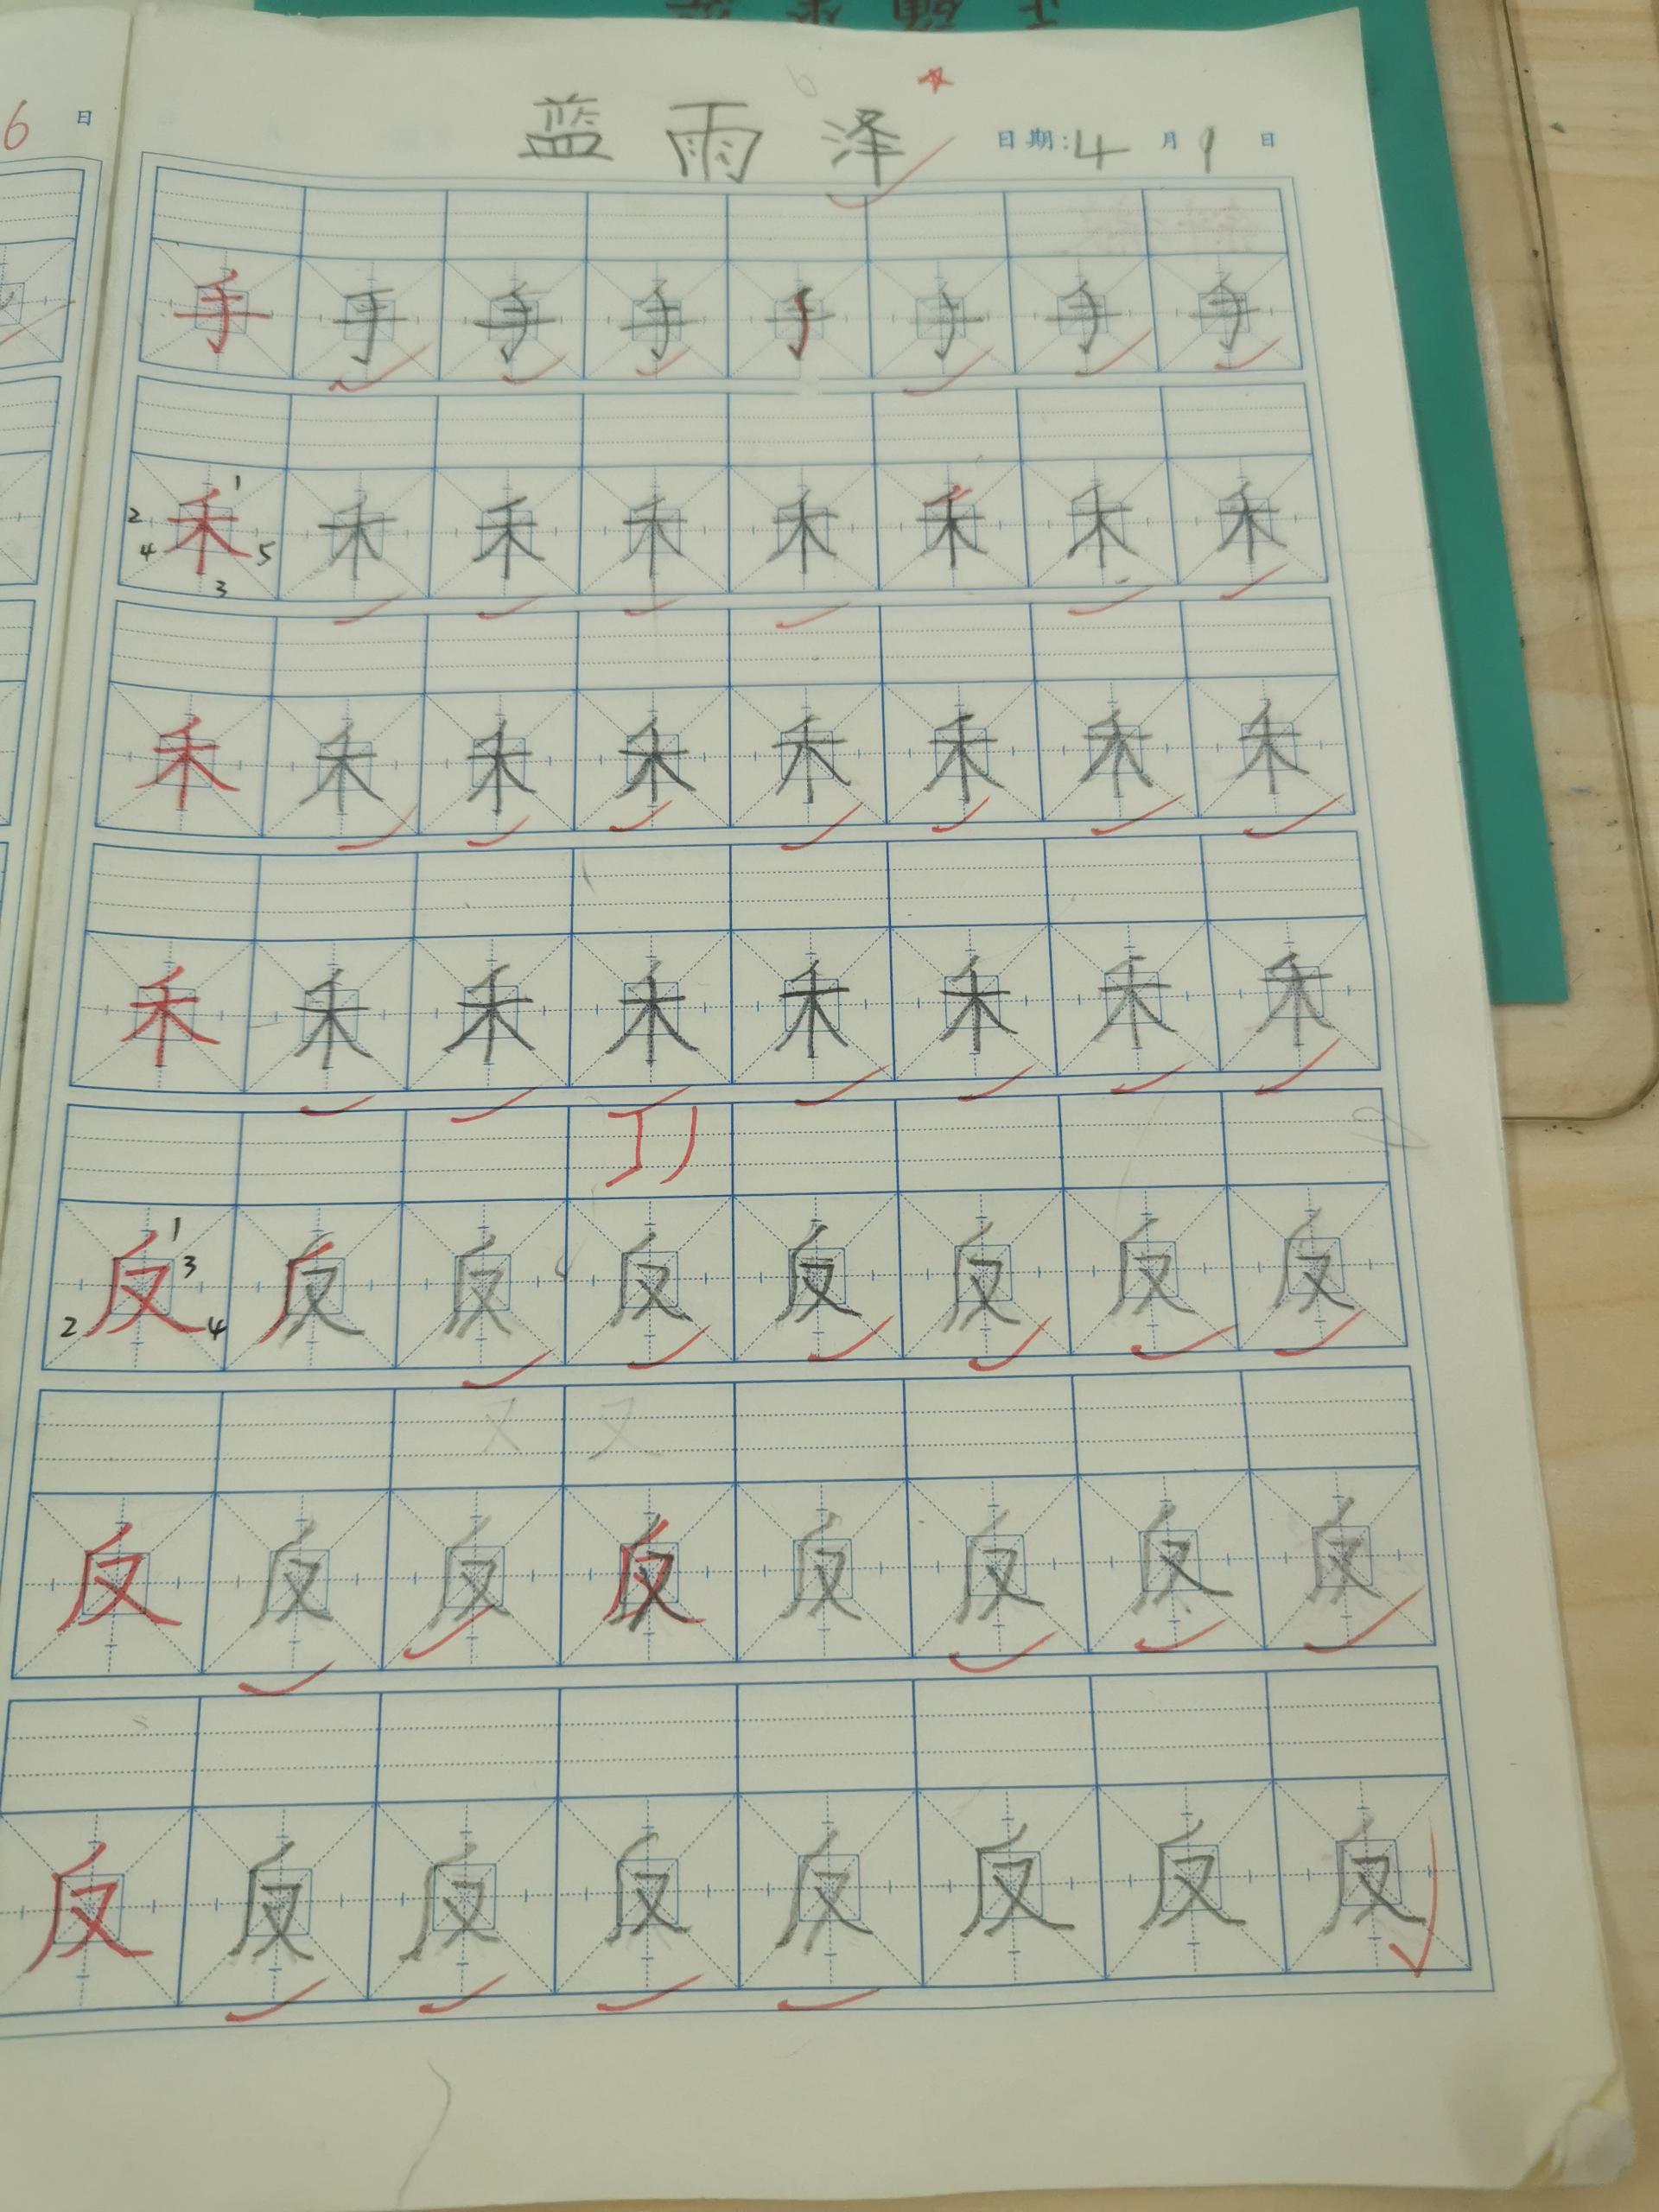 6 日
蓝雨泽 日期:4月9日
手 手 手 手 手 手 手 手
1 2 3 4 5
禾 禾 禾 禾 禾 禾 禾 禾
禾 禾 禾 禾 禾 禾 禾 禾
禾 禾 禾 禾 禾 禾 禾 禾
1 2 3 4
反 反 反 反 反 反 反 反
又 又
反 反 反 反 反 反 反 反
反 反 反 反 反 反 反 反